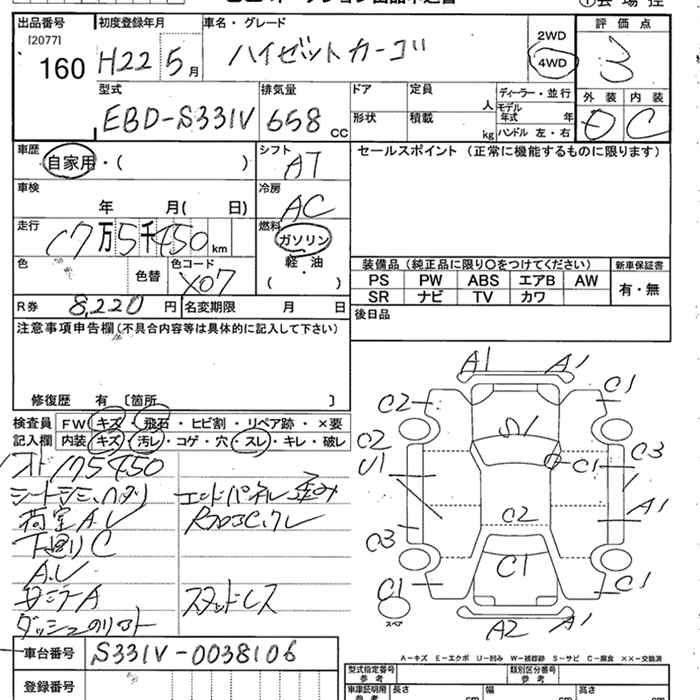 出品番号 初度登録年月 車名・グレード 評価点
[2077]
160 H22 5月 ハイゼットカーゴ 2WD 4WD 3
型式 排気量 ドア 定員 人 ディーラー・並行 外装 内装
EBD-S331V 658 CC 形状 積載 kg モデル年式 年 ハンドル 左・右 D C
車歴 自家用・( ) シフト AT セールスポイント (正常に機能するものに限ります)
車検 年 月( 日) 冷房 AC
走行 17万5千450km 燃料 ガソリン 軽・油 ( )
色 色替 色コード X07 装備品(純正品に限り○をつけてください) 新車保証書
PS PW ABS エアB AW 有・無
SR ナビ TV カワ
R券 8,220円 名変期限 月 日 後日品
注意事項申告欄(不具合内容等は具体的に記入して下さい)
修復歴 有 〔箇所 〕
検査員 FW キズ・飛石・ヒビ割・リペア跡・×要
記入欄 内装 キズ・汚レ・コゲ・穴・スレ・キレ・破レ
175450
シートシミ、ヘタリ エンドパネル歪み
荷室A.U
下廻りC
A.U
スタッドレス
車台番号 S331V-0038106
登録番号
A1 A1
C2 C1
S1
C2 U1 C1 C3
A1
C2
C3
C1 C1 C1
スペア
A2 A1
A-キズ E-エクボ U-凹み W-補修跡 S-サビ C-腐食 ××-交換済
型式指定番号 参考 類別区分番号 参考
車庫証明用 長さ cm 幅 cm 高さ cm